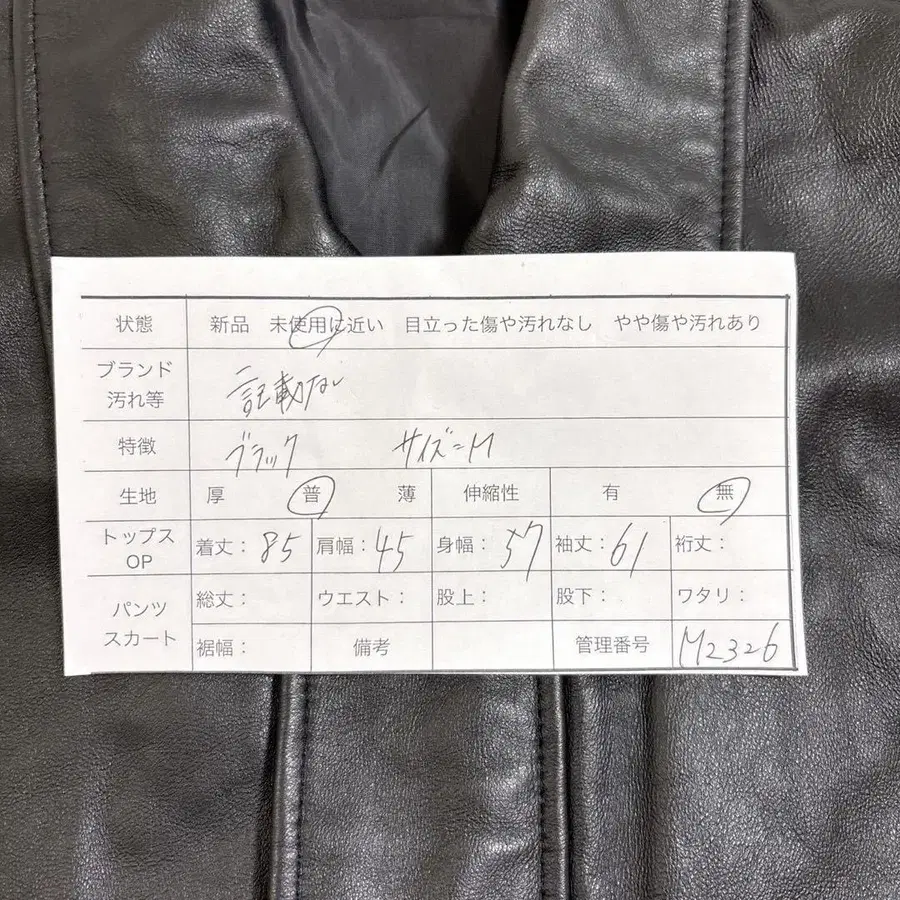 状態 新品 未使用に近い 目立った傷や汚れなし やや傷や汚れあり
ブランド
汚れ等
記載なし
特徴 ブラック サイズ=M
生地 厚 普 薄 伸縮性 有 無
トップス
OP
着丈：85 肩幅：45 身幅：57 袖丈：61 裄丈：
パンツ
スカート
総丈： ウエスト： 股上： 股下： ワタリ：
裾幅： 備考 管理番号 M2326